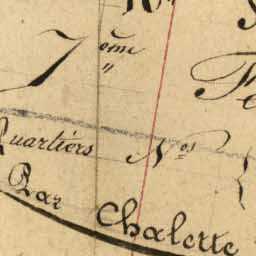 7ème
Quartiers Nos
Bar Chalette